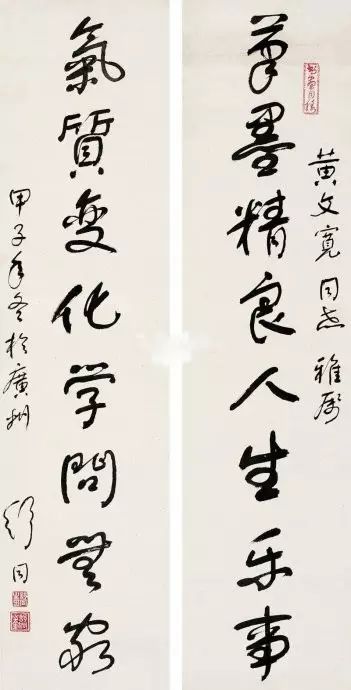 黄文寬同志雅属
筆墨精良人生乐事
氣質变化学問無窮
甲子年冬於廣州
舒同